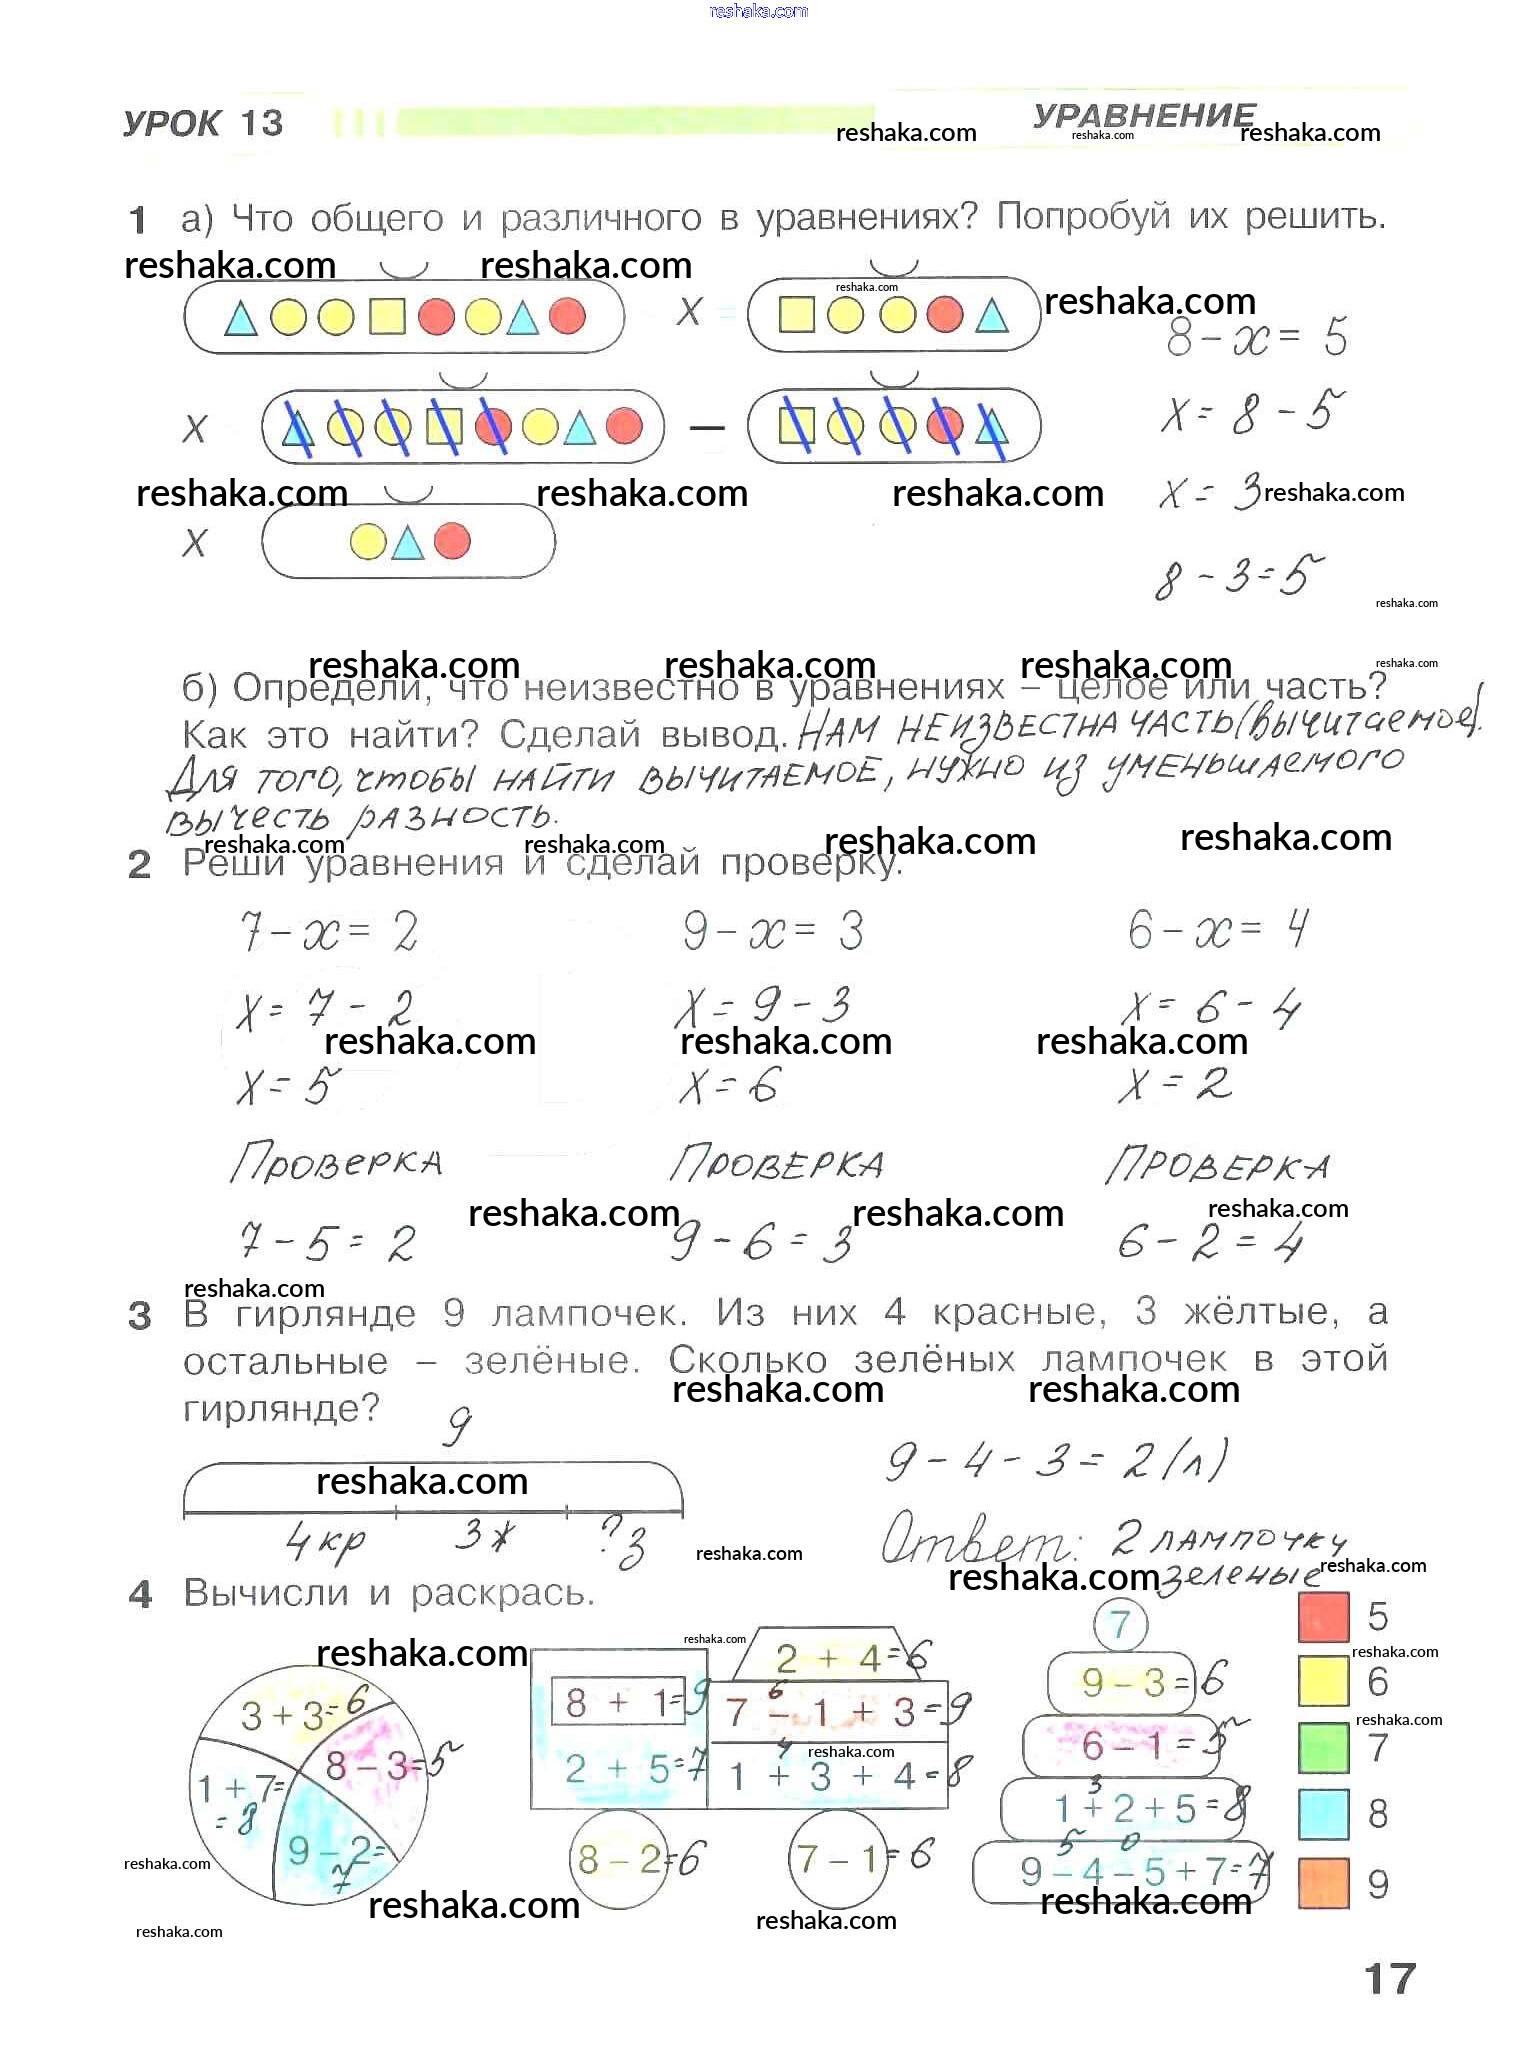 reshaka.com
УРОК 13
УРАВНЕНИЕ
reshaka.com reshaka.com reshaka.com
1 а) Что общего и различного в уравнениях? Попробуй их решить.
reshaka.com reshaka.com
reshaka.com
reshaka.com
X =
8 - x = 5
X
—
X = 8 - 5
reshaka.com reshaka.com reshaka.com
X = 3 reshaka.com
X
8 - 3 = 5
reshaka.com
reshaka.com reshaka.com reshaka.com reshaka.com
б) Определи, что неизвестно в уравнениях – целое или часть?
Как это найти? Сделай вывод. НАМ НЕИЗВЕСТНА ЧАСТЬ (ВЫЧИТАЕМОЕ).
Для того, чтобы найти вычитаемое, нужно из уменьшаемого
вычесть разность.
reshaka.com reshaka.com reshaka.com reshaka.com
2 Реши уравнения и сделай проверку.
7 - x = 2 9 - x = 3 6 - x = 4
X = 7 - 2 X = 9 - 3 X = 6 - 4
reshaka.com reshaka.com reshaka.com
X = 5 X = 6 X = 2
Проверка Проверка Проверка
reshaka.com reshaka.com reshaka.com
7 - 5 = 2 9 - 6 = 3 6 - 2 = 4
reshaka.com
3 В гирлянде 9 лампочек. Из них 4 красные, 3 жёлтые, а
остальные – зелёные. Сколько зелёных лампочек в этой
reshaka.com reshaka.com
гирлянде?
9
9 - 4 - 3 = 2 (л)
reshaka.com
4 кр 3 ж ? з
Ответ: 2 лампочку
зеленые
reshaka.com reshaka.com reshaka.com
4 Вычисли и раскрась.
reshaka.com reshaka.com reshaka.com reshaka.com
3 + 3 = 6
8 - 3 = 5
1 + 7 =
= 8
9 - 2 =
7
2 + 4 = 6
8 + 1 = 9
6
7 - 1 + 3 = 9
2 + 5 = 7
4
1 + 3 + 4 = 8
reshaka.com
8 - 2 = 6
7 - 1 = 6
7
9 - 3 = 6
6 - 1 = 5
3
1 + 2 + 5 = 8
5 0
9 - 4 - 5 + 7 = 7
5
6
7
8
9
reshaka.com reshaka.com reshaka.com reshaka.com
reshaka.com
17